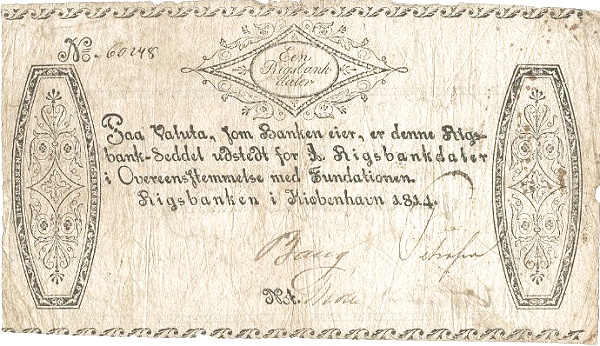 No. 60248
Een
Rigsbank
daler
Paa Valuta, som Banken eier, er denne Rigs-
bank-Seddel udstedt for 1 Rigsbankdaler
i Overeensstemmelse med Fundationen.
Rigsbanken i Kiøbenhavn 1814.
Baug
Nt.